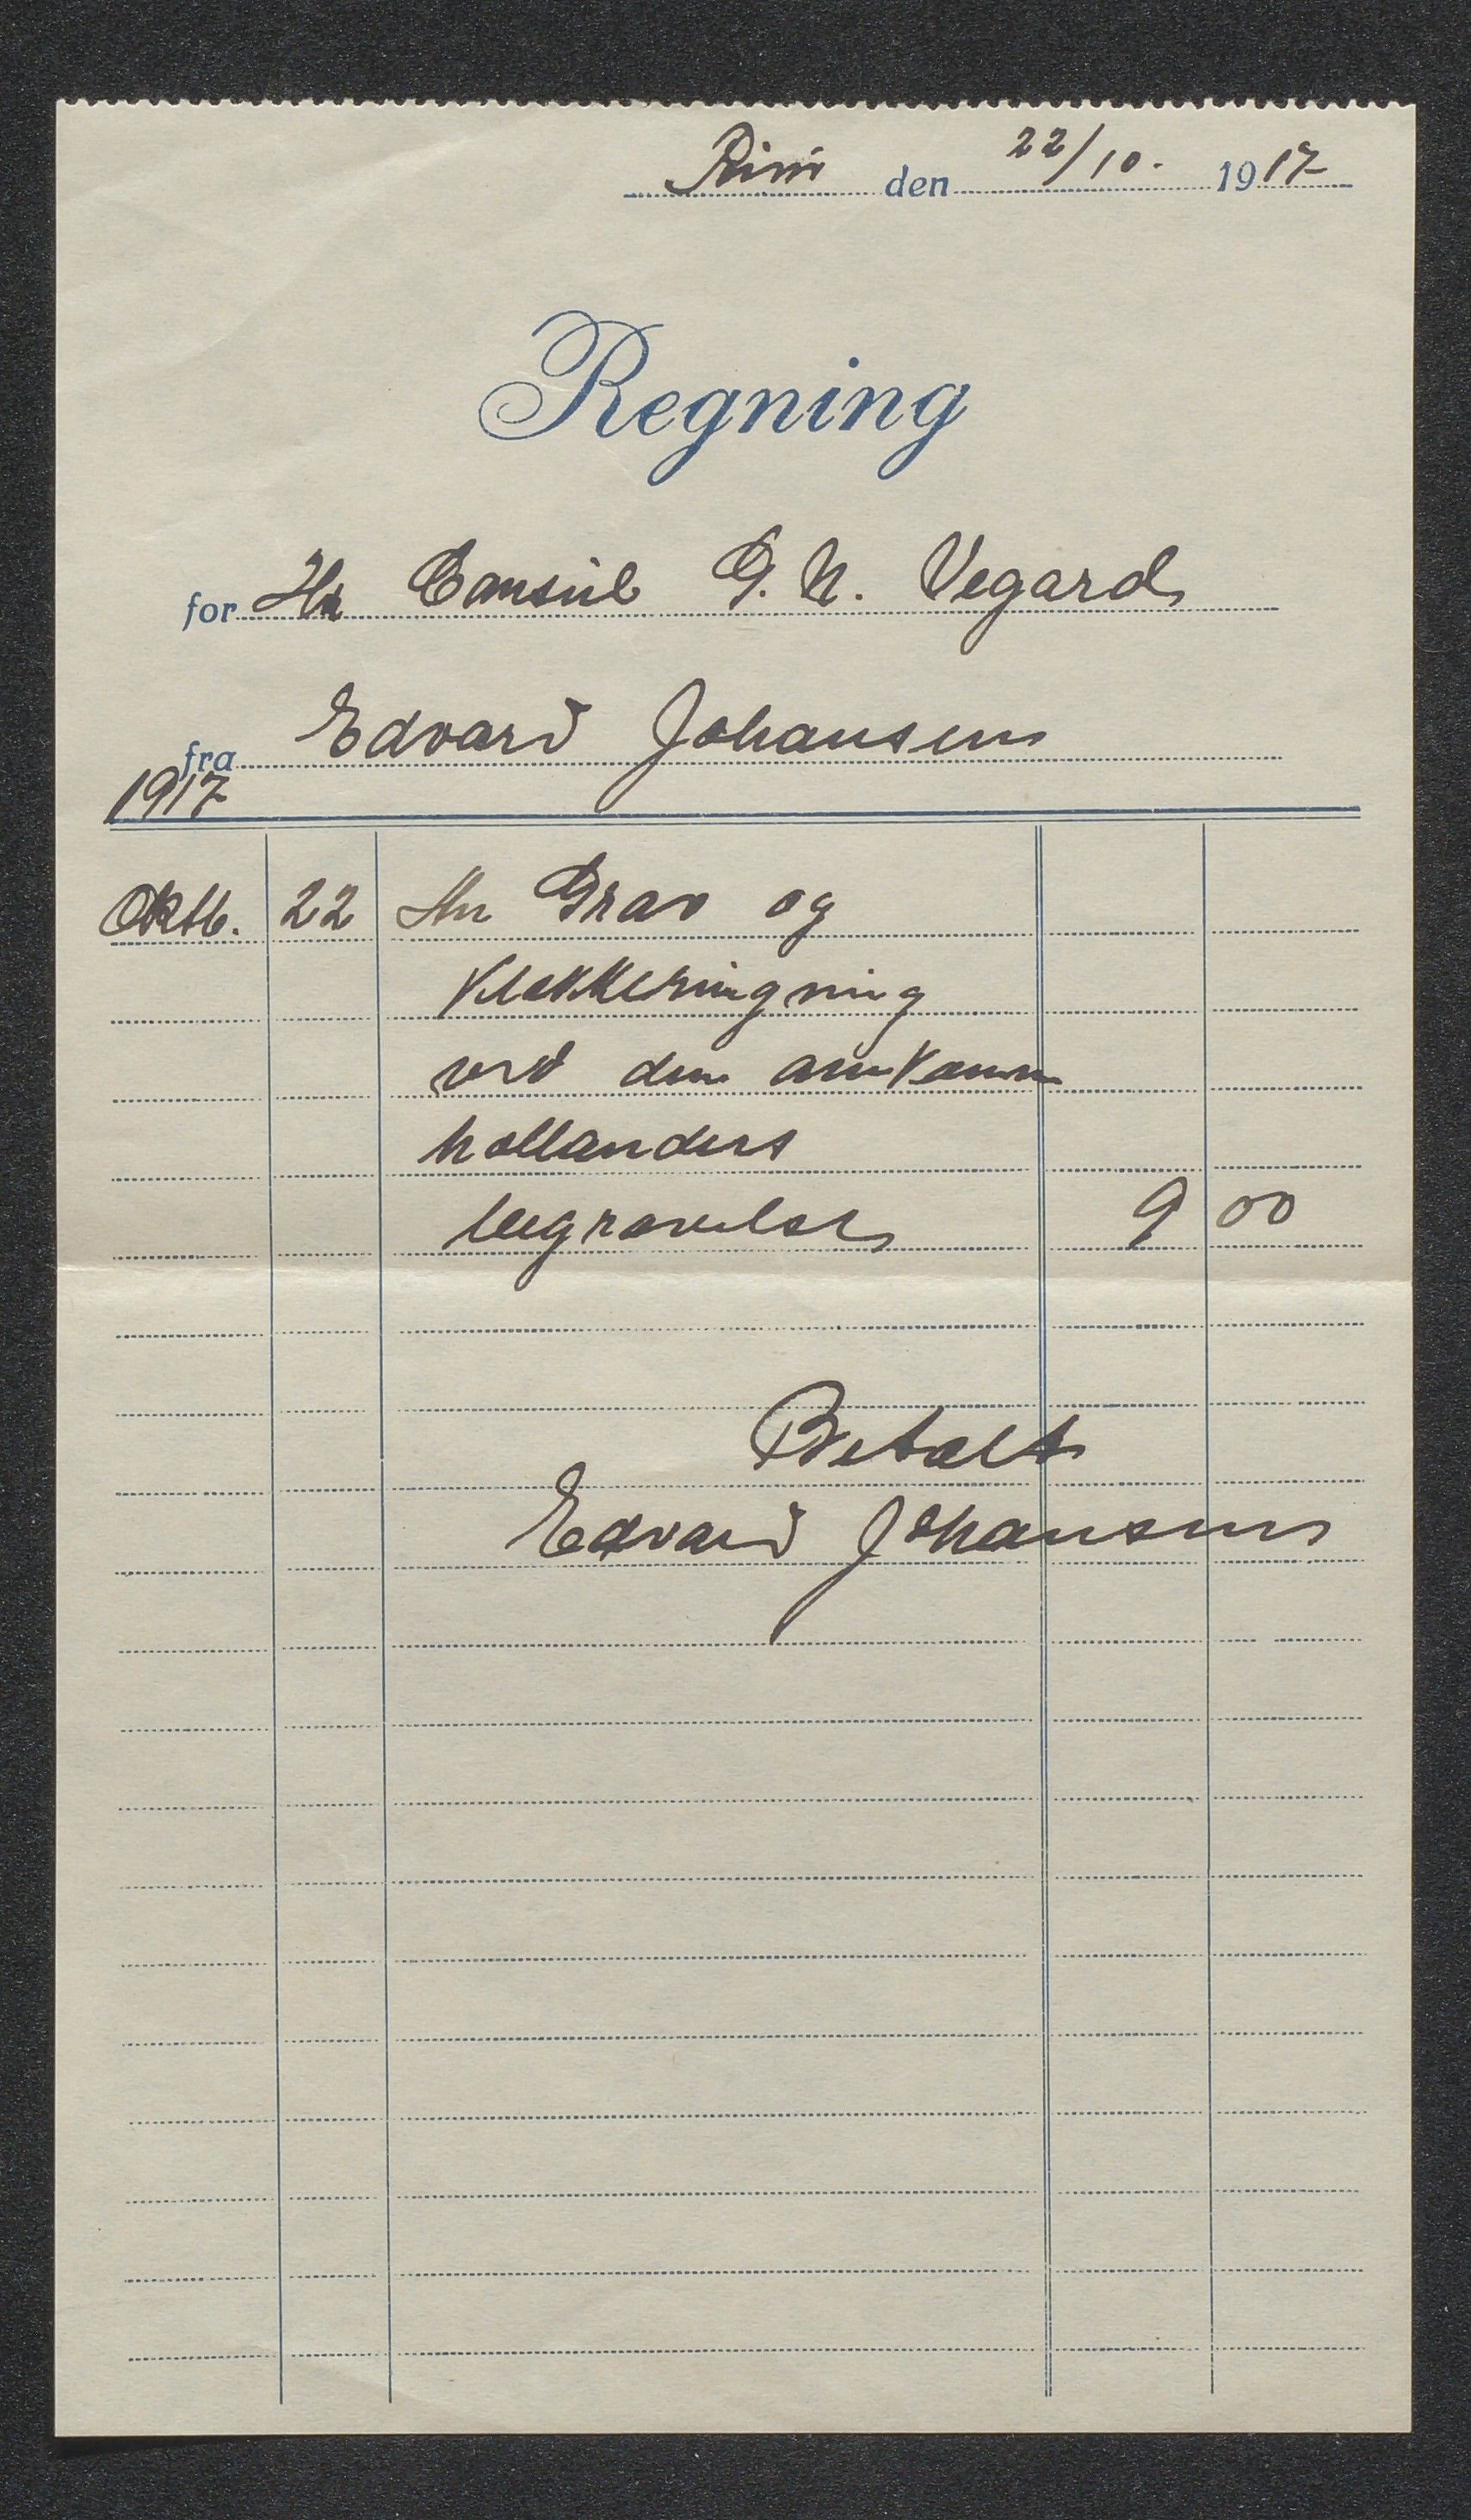 den 22/10. 1917
Regning
for Hr Consul G. N. Vegard
fra Edvard Johansen
1917
Oktb. 22 Grav og
Klokkeringning
ved den ankomne
hollanders
begravelse 9 00
Betalt
Edvard Johansen